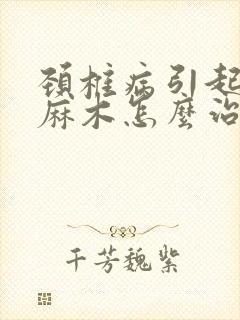 頚椎病引起
麻木怎麼治
千芳魏紫